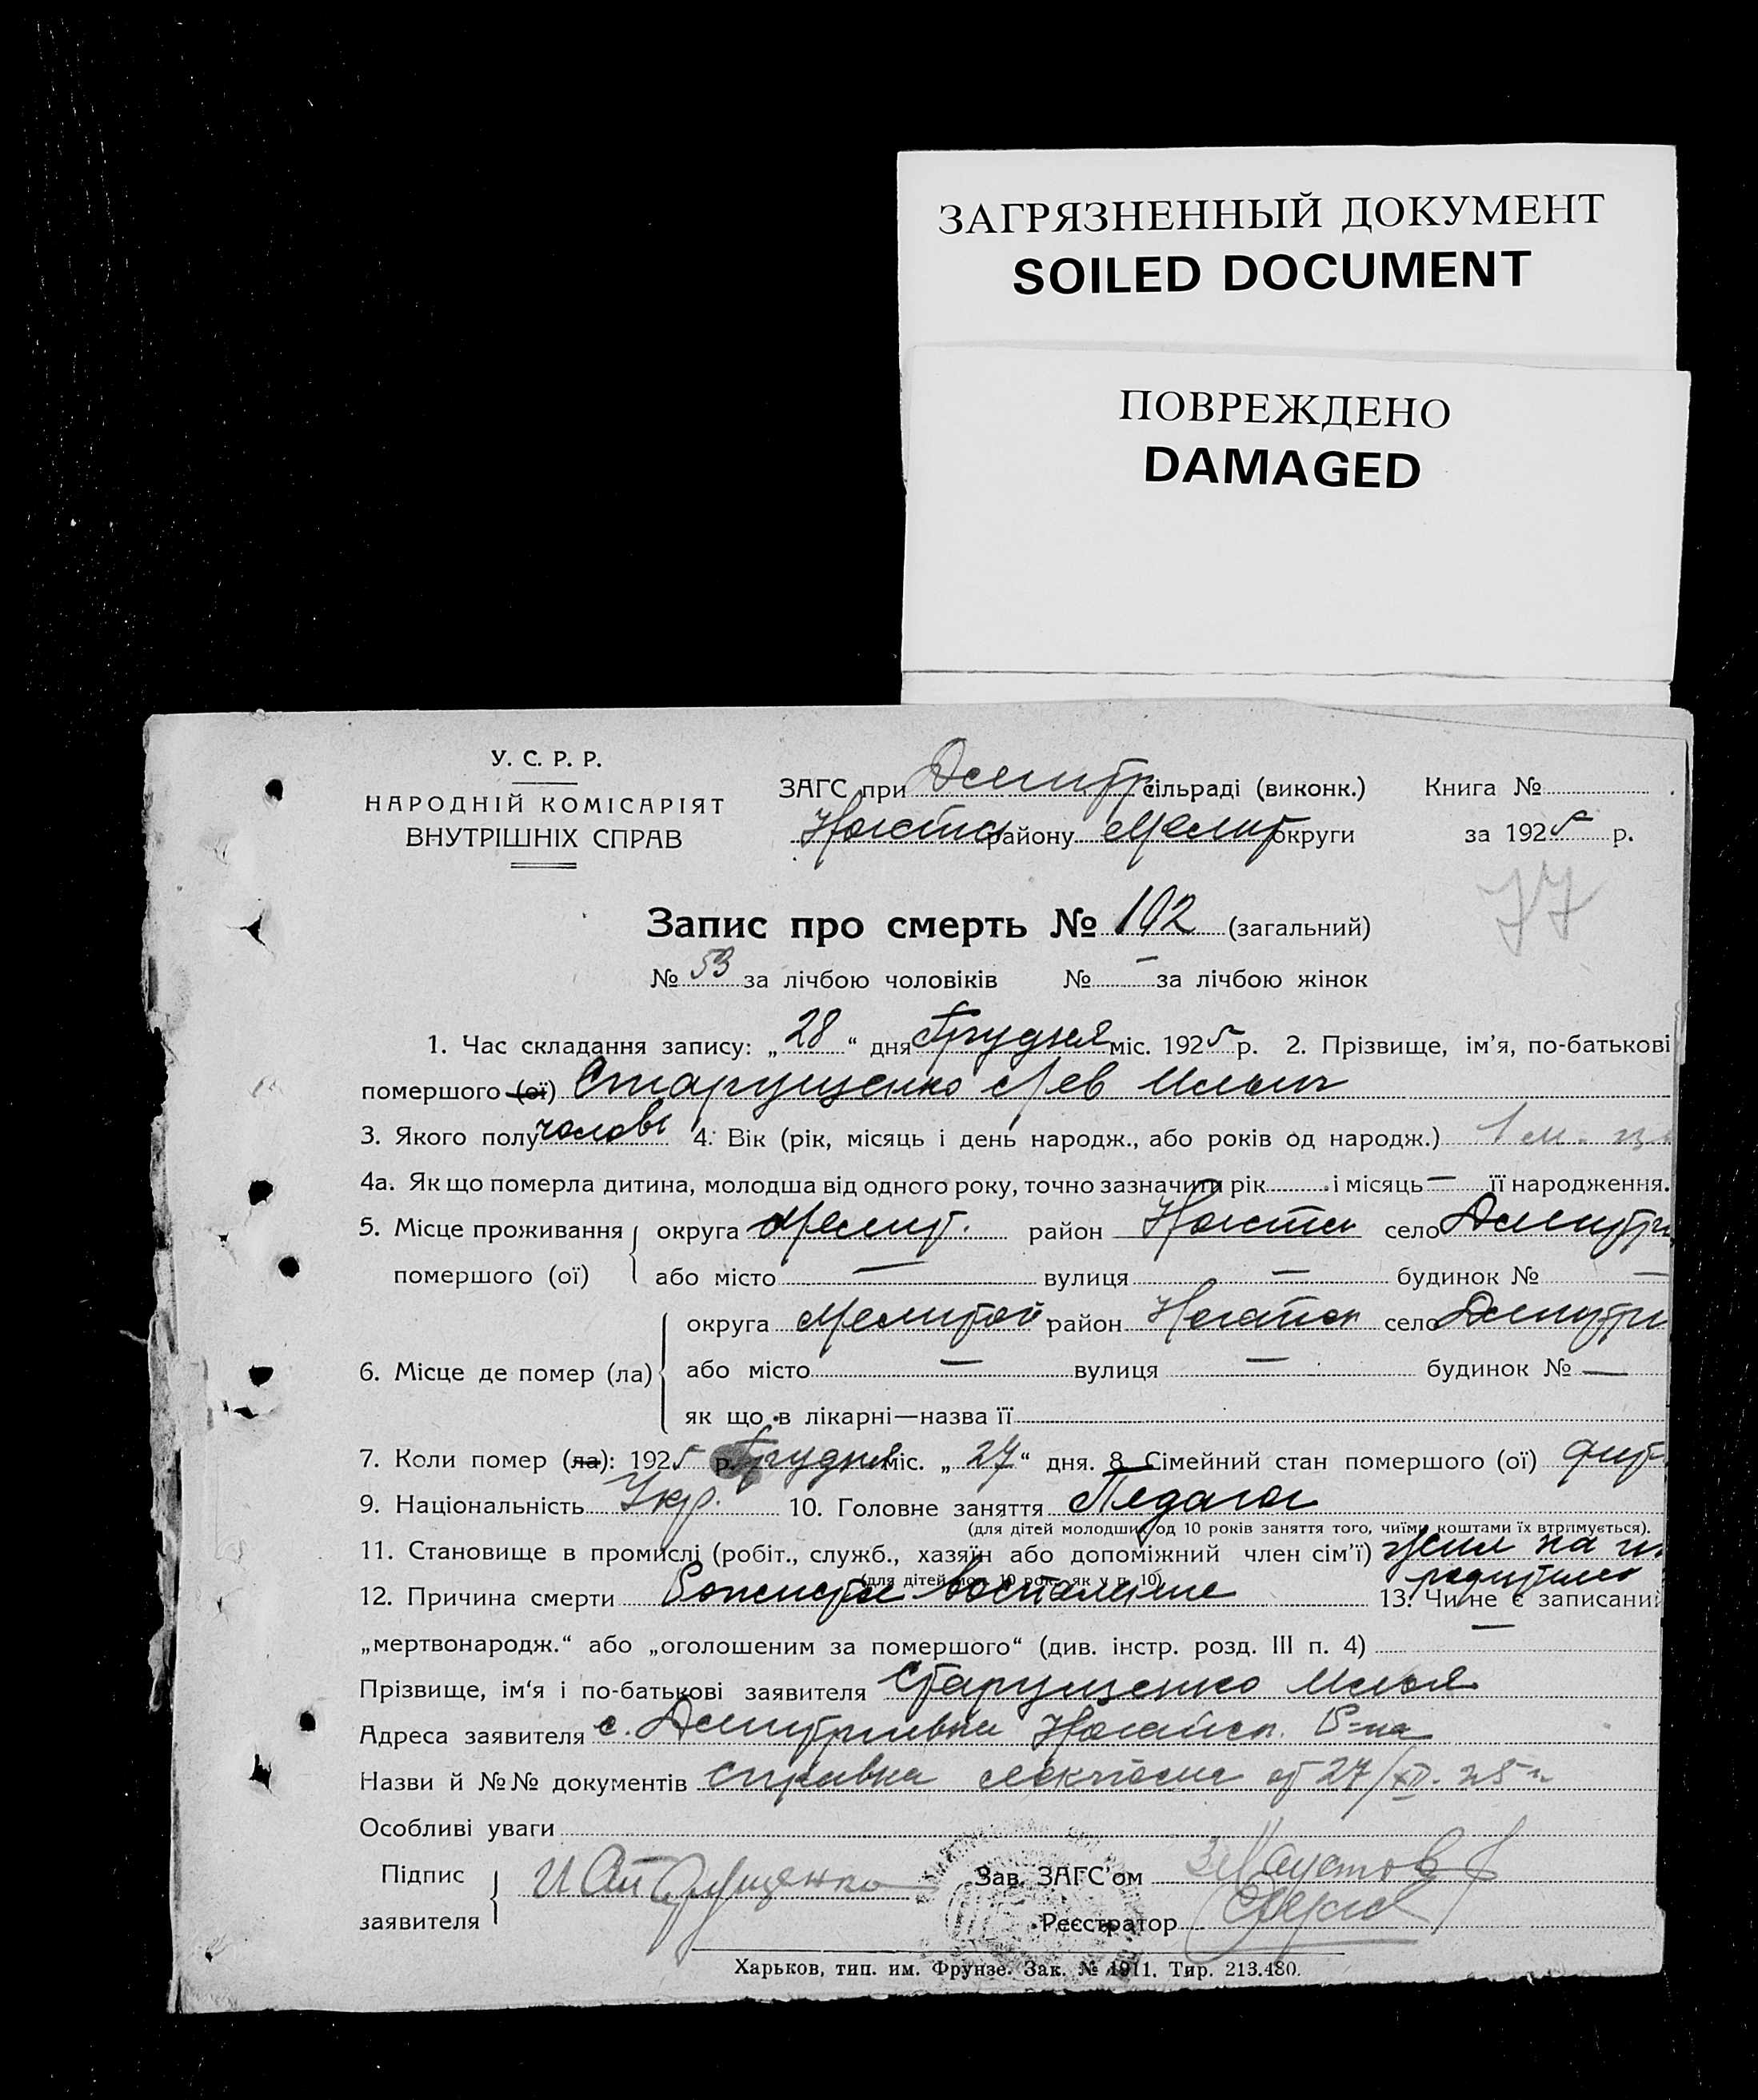 ЗАГРЯЗНЕННЫЙ ДОКУМЕНТ
SOILED DOCUMENT
ПОВРЕЖДЕНО
DAMAGED
У. С. Р. Р.
НАРОДНІЙ КОМІСАРІЯТ
ВНУТРІШНІХ СПРАВ
ЗАГС при Дмитр сільраді (виконк.) Книга №
району Мелит округи за 1925 р.
77
Запис про смерть № 102 (загальний)
№ 53 за лічбою чоловіків № — за лічбою жінок
1. Час складання запису: „28“ дня Грудня міс. 1925 р. 2. Прізвище, ім'я, по-батькові
помершого (ої) Старущенко Лев Ильич
3. Якого полу чолові 4. Вік (рік, місяць і день народж., або років од народж.) 1 м.
4а. Як що померла дитина, молодша від одного року, точно зазначити рік і місяць — її народження.
5. Місце проживання округа Мелит. район село Дмитри
помершого (ої) або місто — вулиця — будинок № —
6. Місце де помер (ла) округа Мелитоп район Ногайск село Дмитри
або місто — вулиця — будинок № —
як що в лікарні—назва її
7. Коли помер (ла): 1925 р. Грудня міс. „27“ дня. 8. Сімейний стан помершого (ої)
9. Національність Укр. 10. Головне заняття Педагог
(для дітей молодших од 10 років заняття того, чиїми коштами їх втримується).
11. Становище в промислі (робіт., служб., хазяїн або допоміжний член сім'ї) на
(для дітей мол. 10 рок. як у п. 10)
12. Причина смерти воспаление 13. Чи не є записаний
„мертвонародж.“ або „оголошеним за помершого“ (див. інстр. розд. III п. 4) —
Прізвище, ім'я і по-батькові заявителя Старущенко Илья
Адреса заявителя с. Дмитривка Ногайск. Р-на
Назви й №№ документів справка от 27/XII. 25 г
Особливі уваги
Підпис заявителя И Старущенко Зав. ЗАГС'ом
Реєстратор
Харьков, тип. им. Фрунзе. Зак. № 1911. Тир. 213.480.